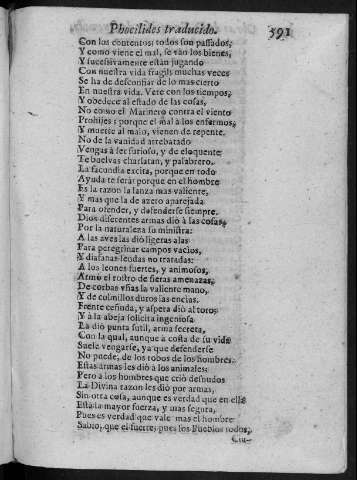 Phocilides traducido. 391
Con los contentos; todos son passados,
Y como viene el mal, se vàn los bienes,
Y sucessivamente estàn jugando
Con nuestra vida fragil; muchas veces
Se ha de desconfiar de lo mas cierto
En nuestra vida. Vete con los tiempos,
Y obedece al estado de las cosas,
No como el Marinero contra el viento
Prohijes; porque el mal a los enfermos,
Y muerte al malo, vienen de repente.
No de la vanidad arrebatado
Vengas à ser furioso, y de eloquente
Te buelvas charlatan, y palabrero.
La facundia excita, porque en todo
Ayuda te serà: porque en el hombre
Es la razon la lanza mas valiente,
Y mas que la de azero aparejada
Para ofender, y defenderse siempre.
Dios diferentes armas diò à las cosas,
Por la naturaleza su ministra:
A las aves las diò ligeras alas
Para peregrinar campos vacios,
Y diafanas sendas no tratadas:
A los leones fuertes, y animosos,
Armò el rostro de fieras amenazas,
De corbas vñas la valiente mano,
Y de colmillos duros las encias.
Frente ceñuda, y aspera diò al toro;
Y à la abeja solicita ingeniosa
La diò punta sutil, arma secreta,
Con la qual, aunque à costa de su vida
Suele vengarse, ya que defenderse
No puede, de los robos de los hombres.
Estas armas les diò à los animales:
Pero à los hombres que criò desnudos
La Divina razon les diò por armas,
Sin otra cosa, aunque es verdad que en ella
Està la mayor fuerza, y mas segura,
Pues es verdad que vale mas el hombre
Sabio, que el fuerte; pues los Pueblos todos,